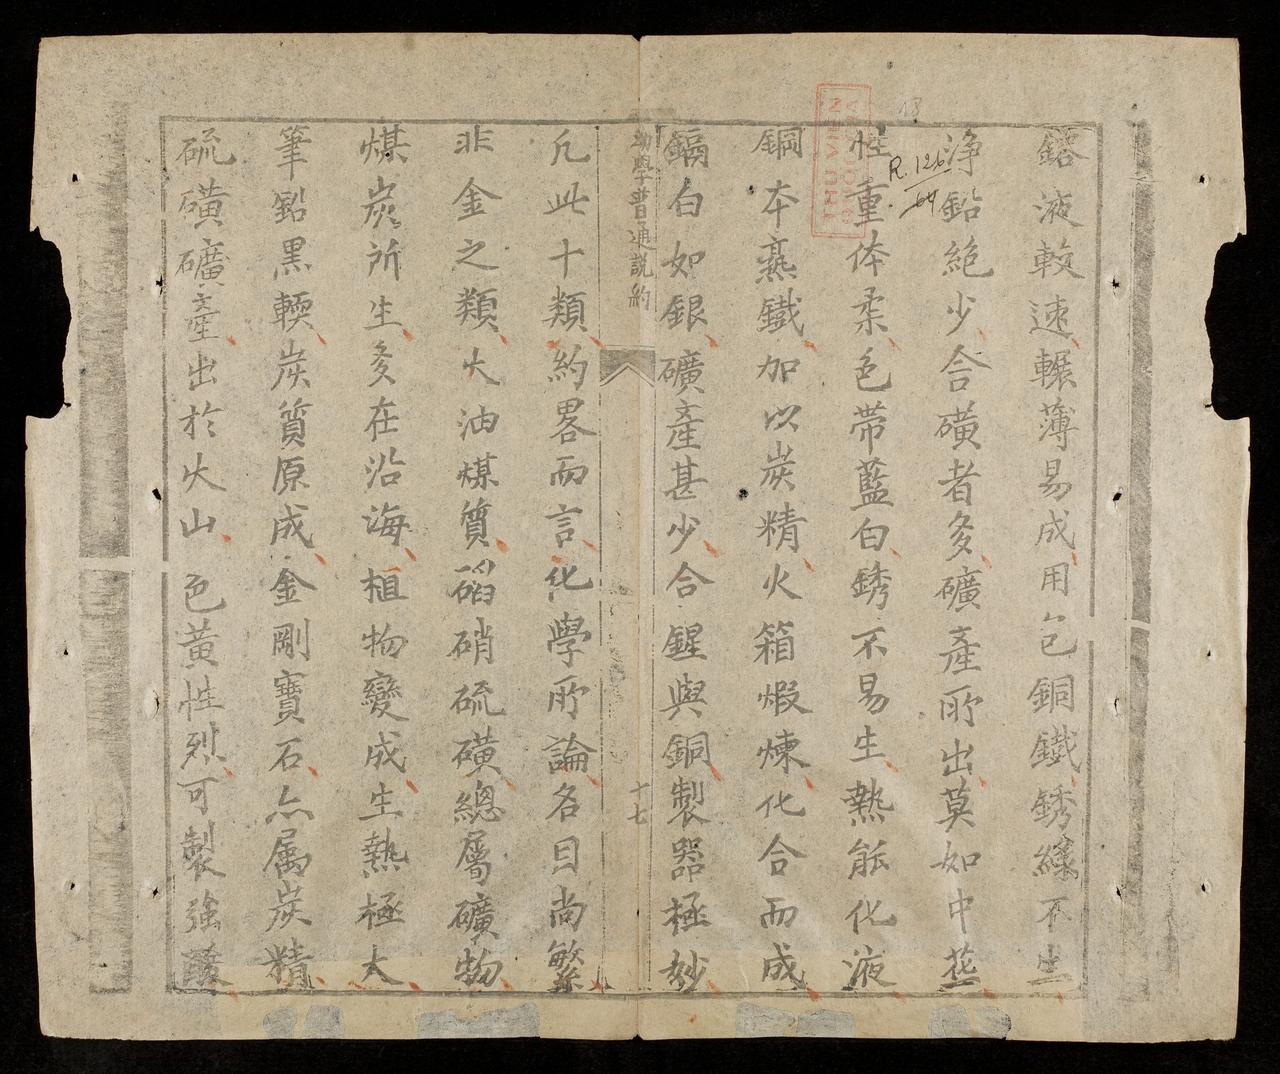 鎔液較速輾薄易成用包銅鐵銹緣不生
淨鉛絶少合磺者多礦產所出莫如中華
性重体柔色带藍白銹不易生熱能化液
鋼本熟鐵加以炭精火箱煅煉化合而成
鎳白如銀礦產甚少合鋅與銅製器極妙
幼學普通説約
十七
凢此十類約畧而言化學所論名目尚繁
非金之類火油煤質硝硫磺總屬礦物
煤炭所生多在沿海植物變成生熱極大
筆鉛黑輭炭質原成金剛寶石亦属炭精
硫磺礦產出於火山色黃性烈可製強酸
THU VIEN
R. 126
64
13